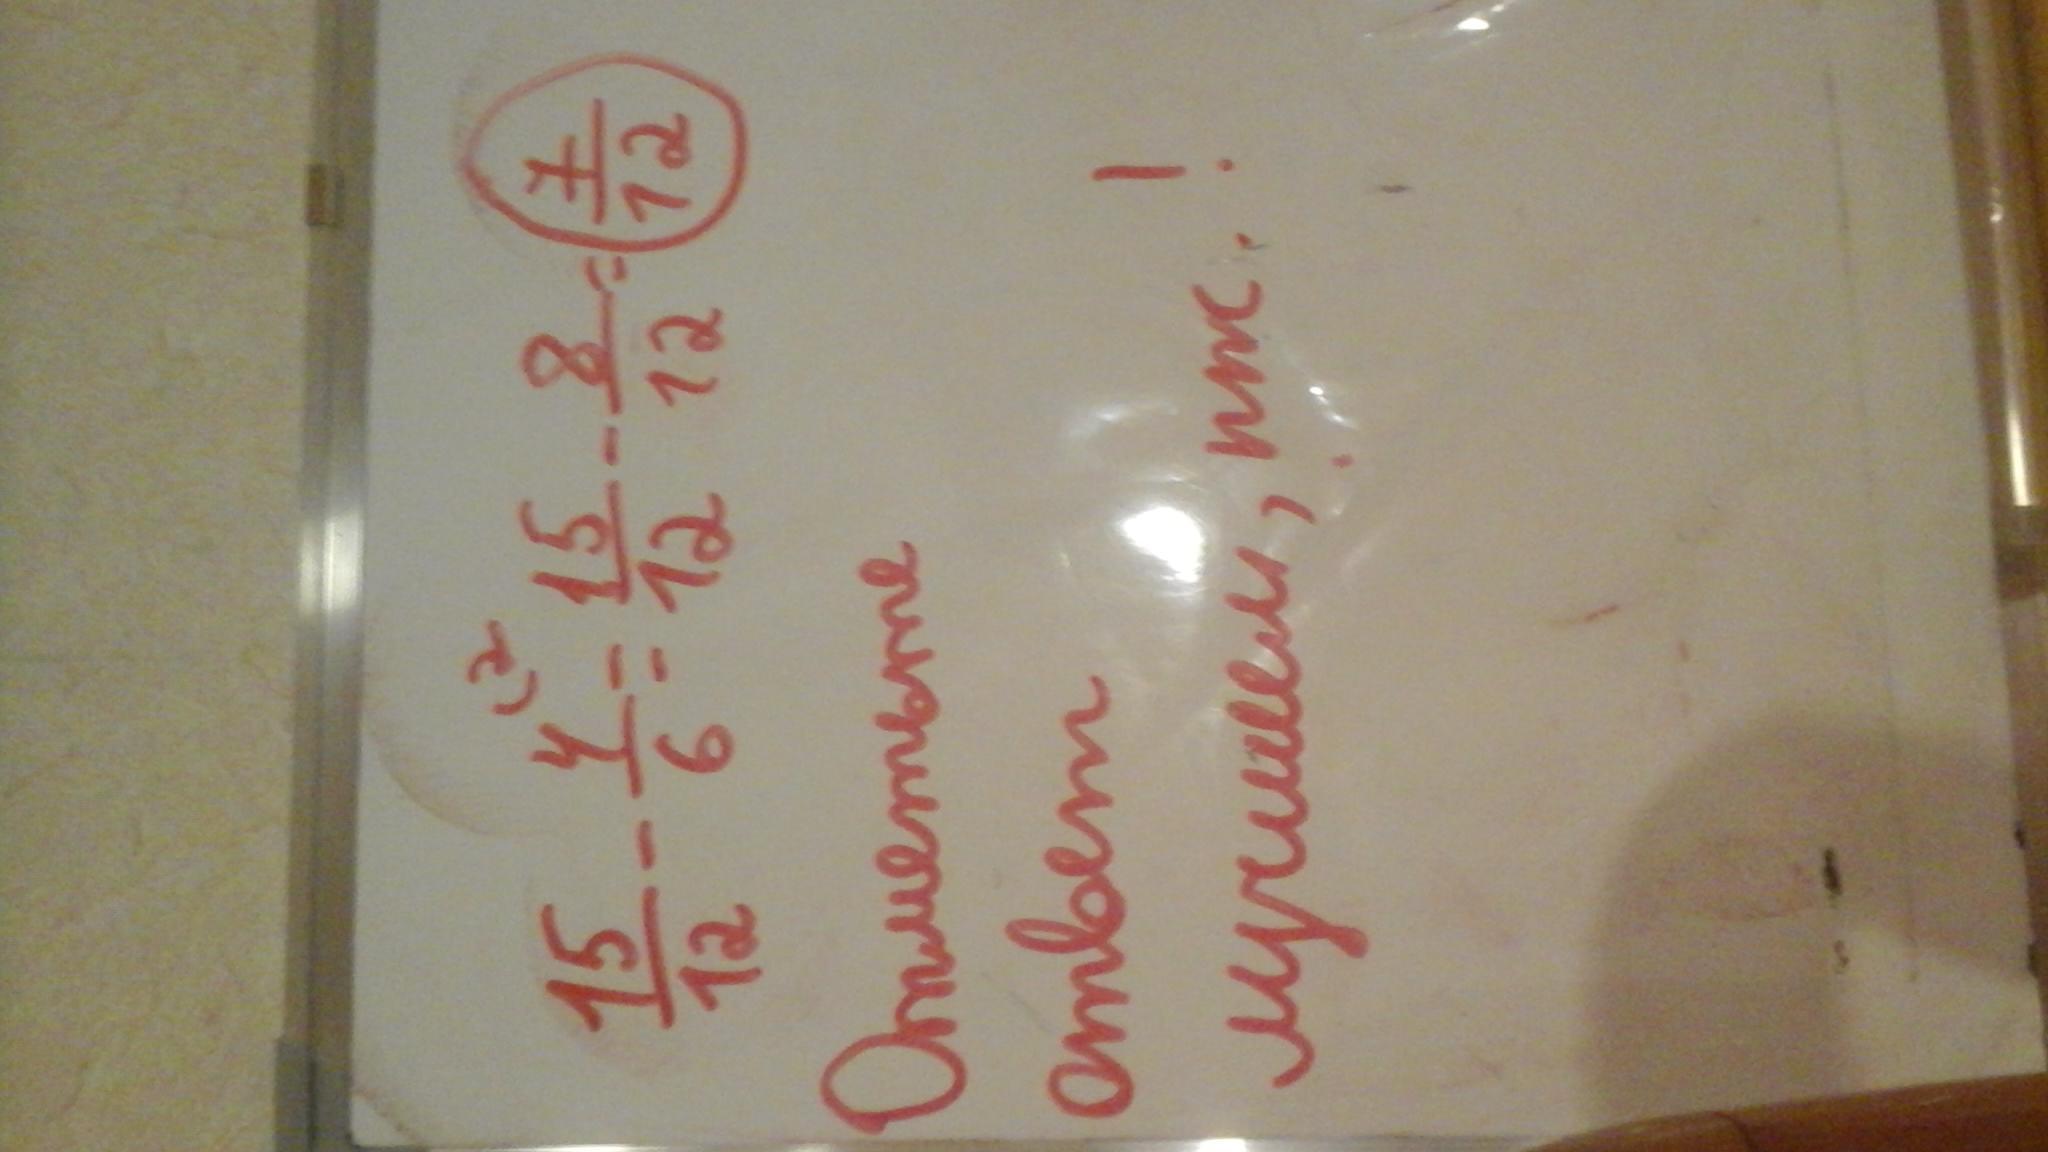 15/12 - 4/6 (2 = 15/12 - 8/12 = 7/12
Отметьте
ответ
лучшим, пж. !